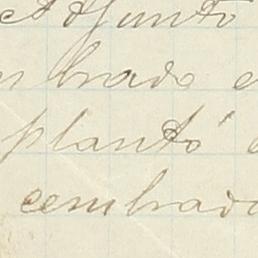 Adjunto
brado e
plantó
cembrado